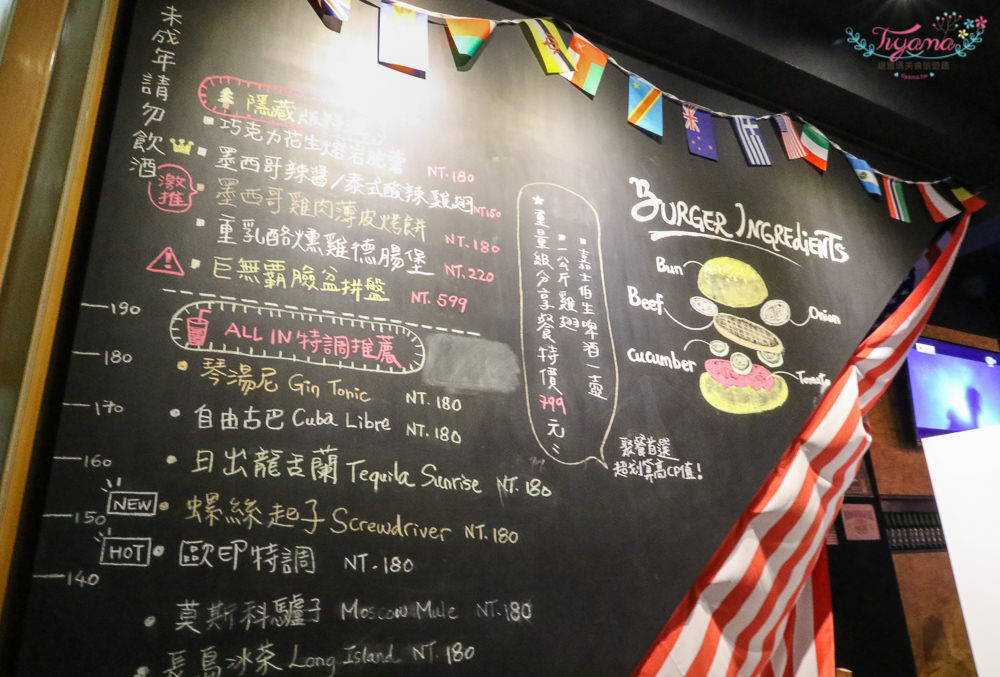 未成年請勿飲酒
隱藏版
巧克力花生熔岩脆薯 NT.180
墨西哥辣醬/泰式酸辣雞翅 NT.150
激推
墨西哥雞肉薄皮烤餅 NT.180
重乳酪燻雞德腸堡 NT.220
巨無霸臉盆拼盤 NT.599
ALL IN 特調推薦
琴湯尼 Gin Tonic NT.180
自由古巴 Cuba Libre NT.180
日出龍舌蘭 Tequila Sunrise NT.180
NEW 螺絲起子 Screwdriver NT.180
HOT 歐印特調 NT.180
莫斯科驢子 Moscow Mule NT.180
長島冰茶 Long Island NT.180
190
180
170
160
150
140
嘉士伯生啤酒一壺
一公斤雞翅
★重量級分享餐特價799元
聚餐首選
超划算高CP值!
BURGER INGREdiENTS
Bun
Beef
Cucumber
Onion
Tomato
Tiyama
tiyama.tw